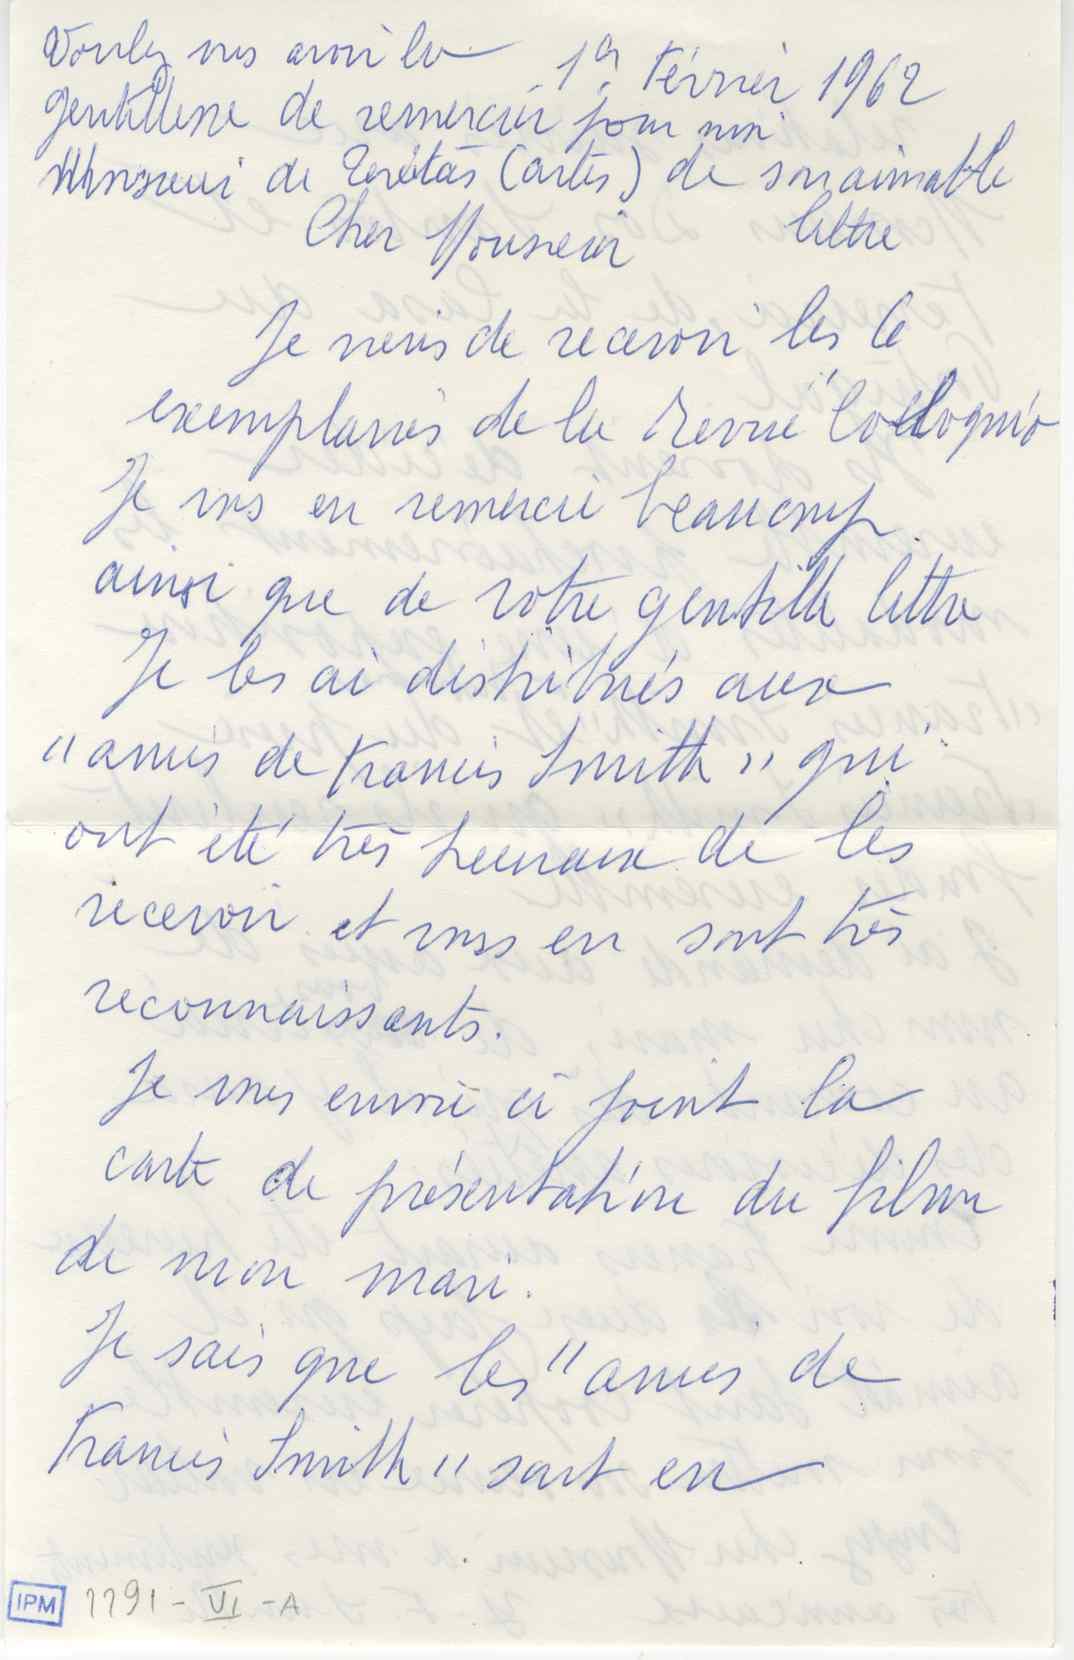 Voulez vous avoir la
1er Février 1962
gentillesse de remercier pour moi
Monsieur de (Artis) de son aimable
lettre
Cher Monsieur
Je viens de recevoir les 6
exemplaires de la Revue "Colloquio
Je vous en remercie beaucoup
ainsi que de votre gentille lettre
Je les ai distribués aux
"amis de Francis Smith" qui
ont été très heureux de les
recevoir et vous en sont très
reconnaissants.
Je vous envoie ci joint la
carte de présentation du film
de mon mari.
Je sais que les "amis de
Francis Smith" sont en
IPM 7791-VI-A